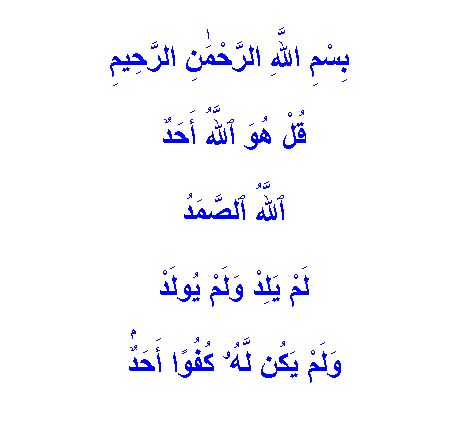 بِسْمِ اللَّهِ الرَّحْمَٰنِ الرَّحِيمِ
قُلْ هُوَ ٱللَّهُ أَحَدٌ
ٱللَّهُ ٱلصَّمَدُ
لَمْ يَلِدْ وَلَمْ يُولَدْ
وَلَمْ يَكُن لَّهُۥ كُفُوًا أَحَدٌۢ